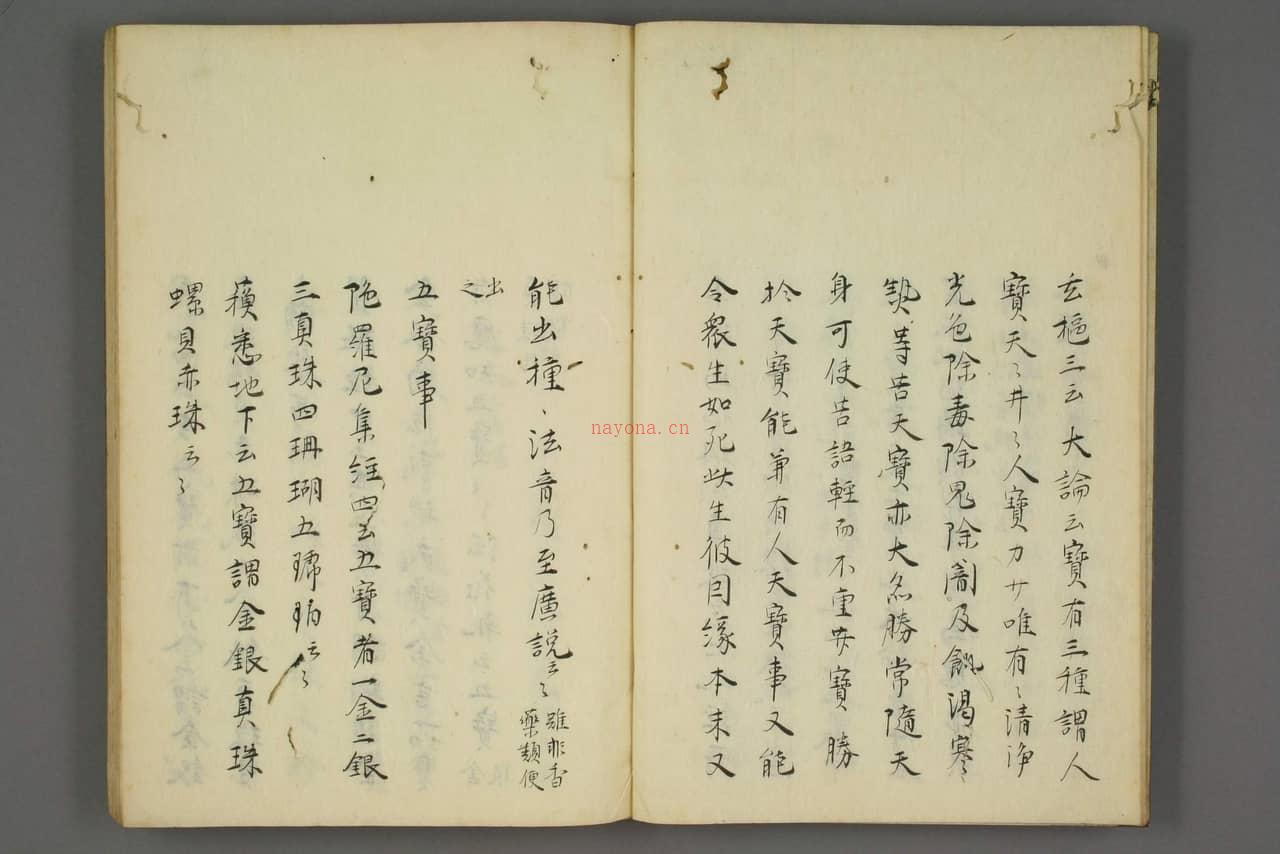 玄樞三云大論云寶有三種謂人
寶天〻井〻人寶力廿唯有〻清浄
光色除毒除鬼除闇及飢渴寒
熱等苦天寶亦大亦勝常隨天
身可使告語輕而不重井寶勝
於天寶能兼有人天寶事又能
令衆生知死此生彼因緣本末又
能出種〻法音乃至廣說云〻 雖非香
藥類便
出
之
五寶事
陀羅尼集經四云五寶者一金二銀
三真珠四珊瑚五琥珀云〻
蘓悉地下云五寶謂金銀真珠
螺貝赤珠云〻
nayona.cn